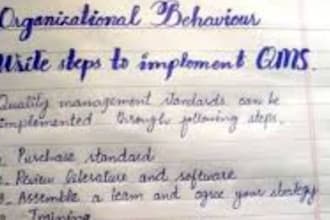 Organizational Behaviour
Write steps to implement QMS.
Quality management standards can be
implemented through following steps.
1. Purchase standard
2. Review literature and software
3. Assemble a team and agree your strategy
4. Training